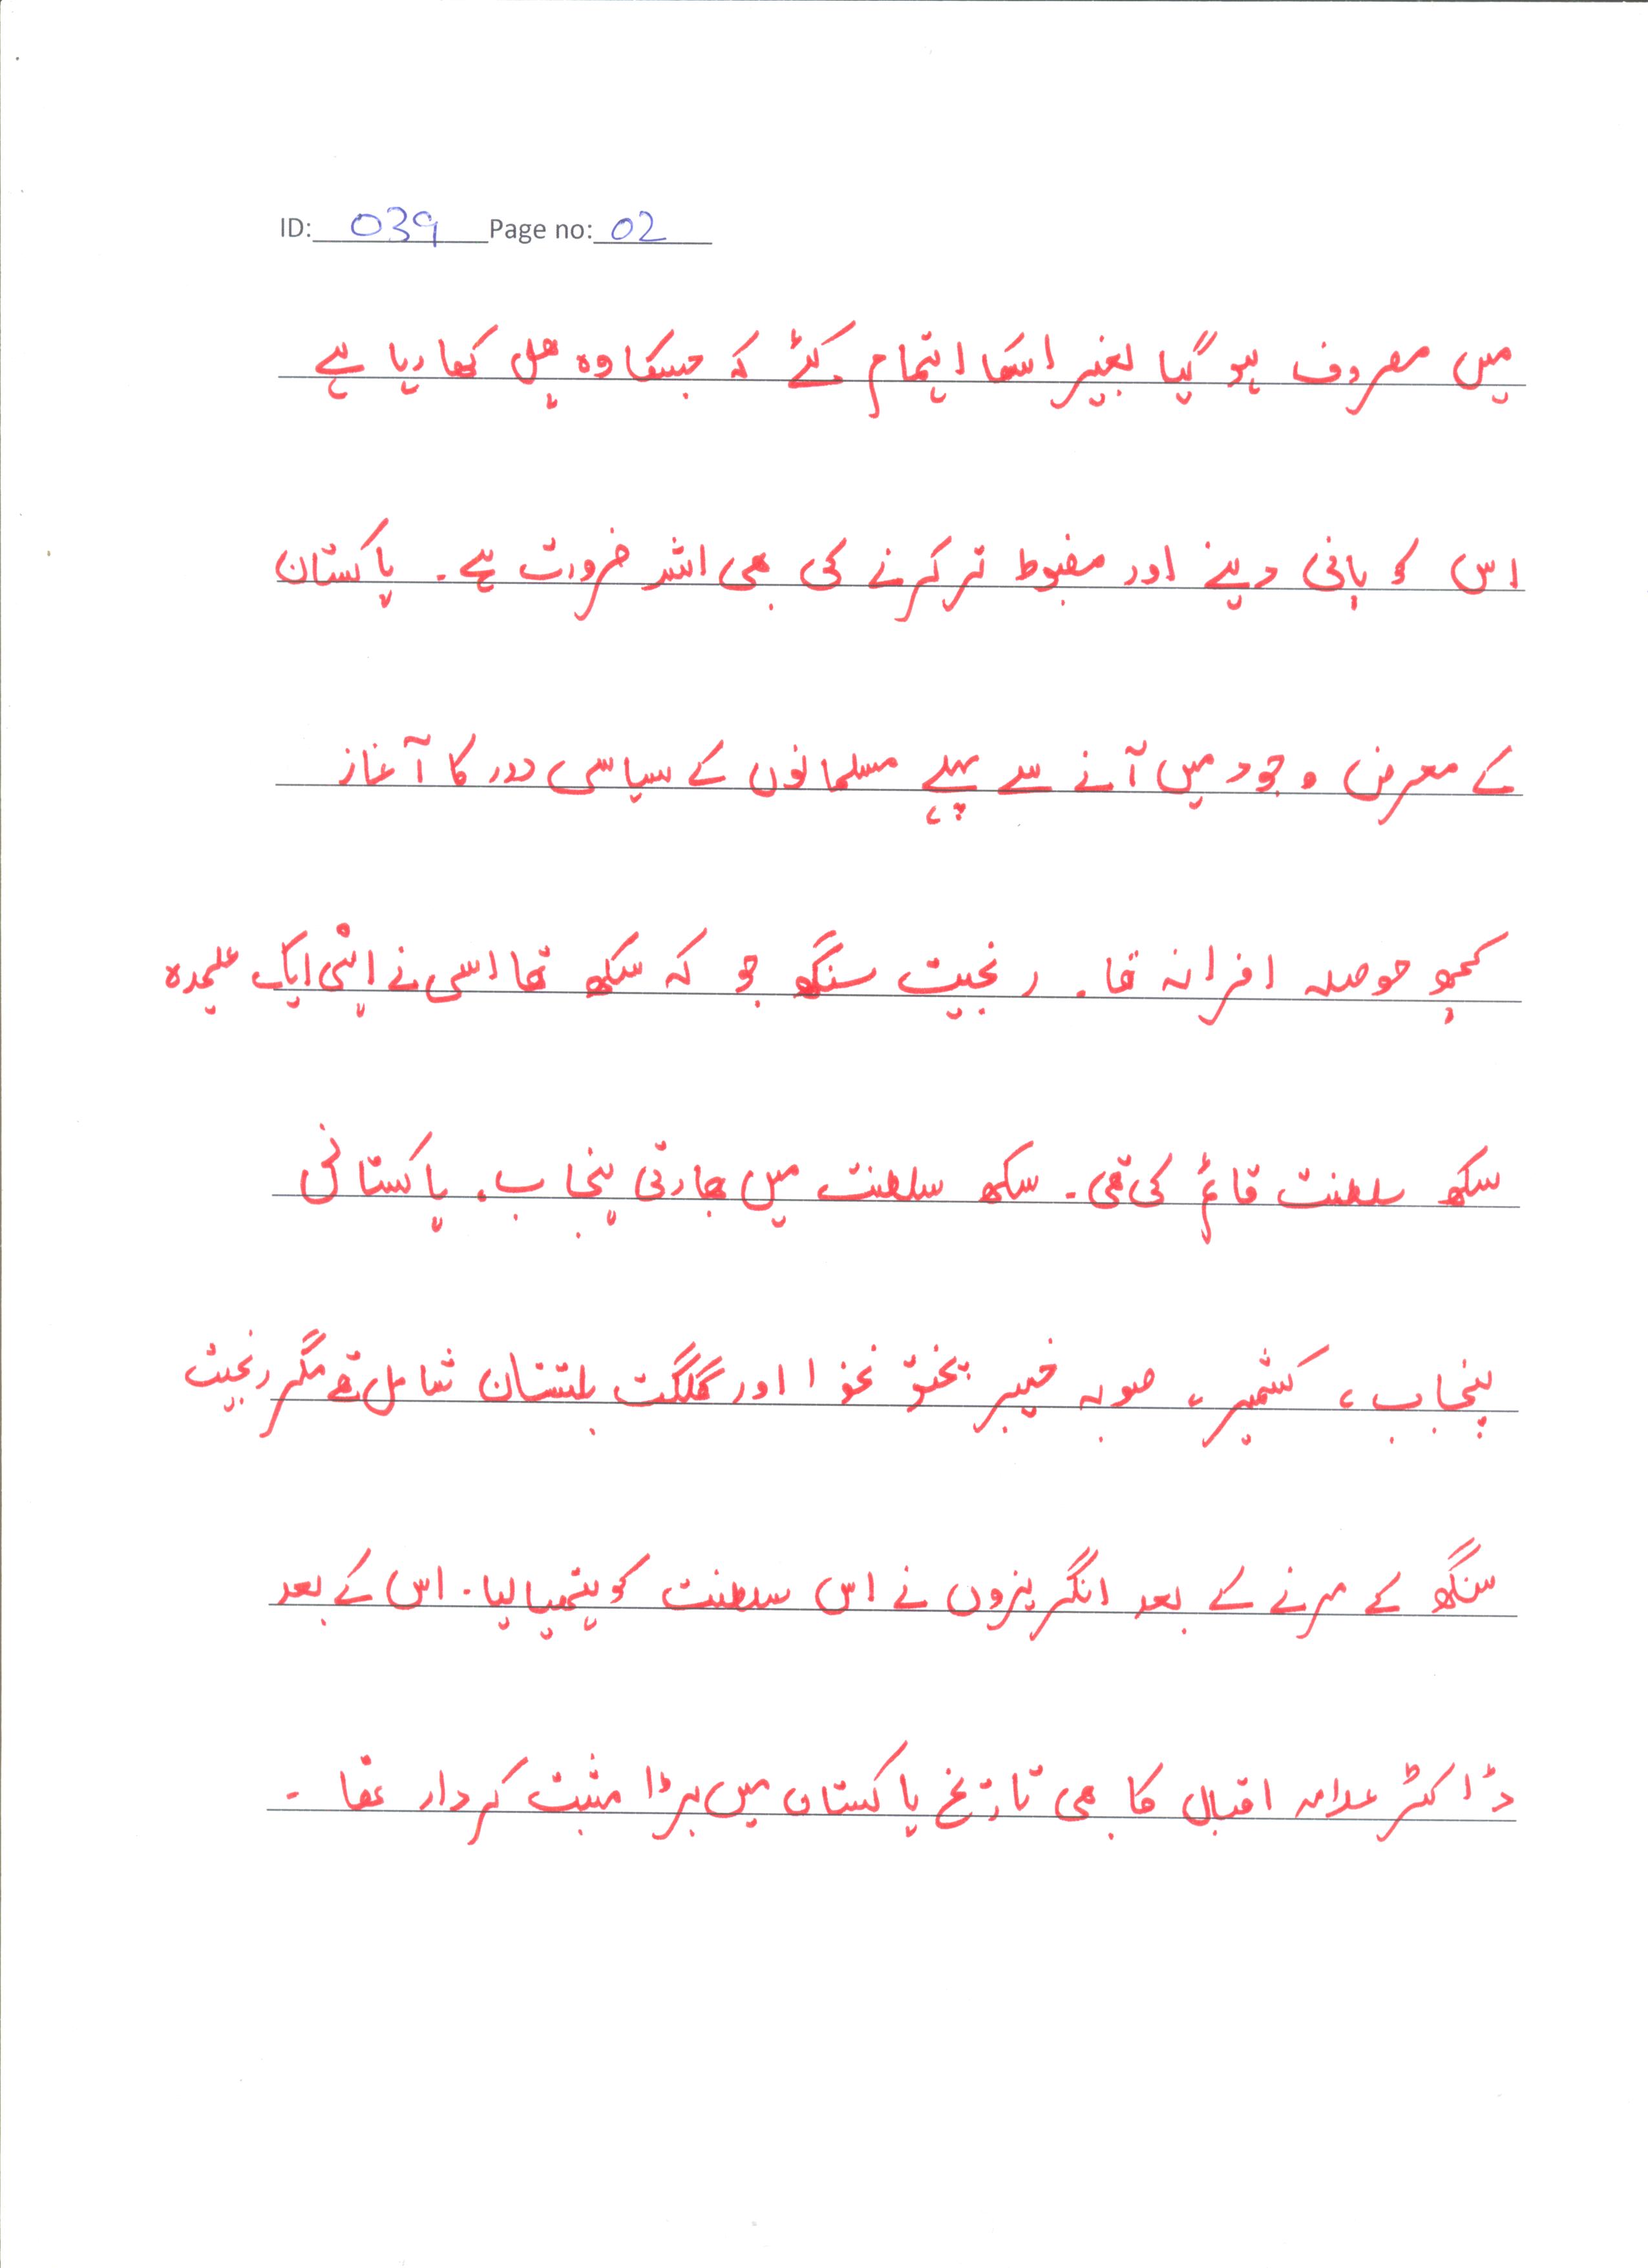 ID: 039 Page no: 02
میں مصروف ہو گیا بغیر اسکا اہتمام کئے کہ جسکا وہ پھل کھا رہا ہے
اس کو پانی دینے اور مضبوط تر کرنے کی بھی اشد ضرورت ہے۔ پاکستان
کے معرض وجود میں آنے سے پہلے مسلمانوں کے سیاسی دور کا آغاز
کچھ حوصلہ افزا نہ تھا۔ رنجیت سنگھ جو کہ سکھ تھا اسی نے اپنی ایک علیحدہ
سکھ سلطنت قائم کی تھی۔ سکھ سلطنت میں بھارتی پنجاب، پاکستانی
پنجاب، کشمیر، صوبہ خیبر پختونخوا اور گلگت بلتستان شامل تھے مگر رنجیت
سنگھ کے مرنے کے بعد انگریزوں نے اس سلطنت کو ہتھیا لیا۔ اس کے بعد
ڈاکٹر علامہ اقبال کا بھی تاریخ پاکستان میں بڑا مثبت کردار تھا۔